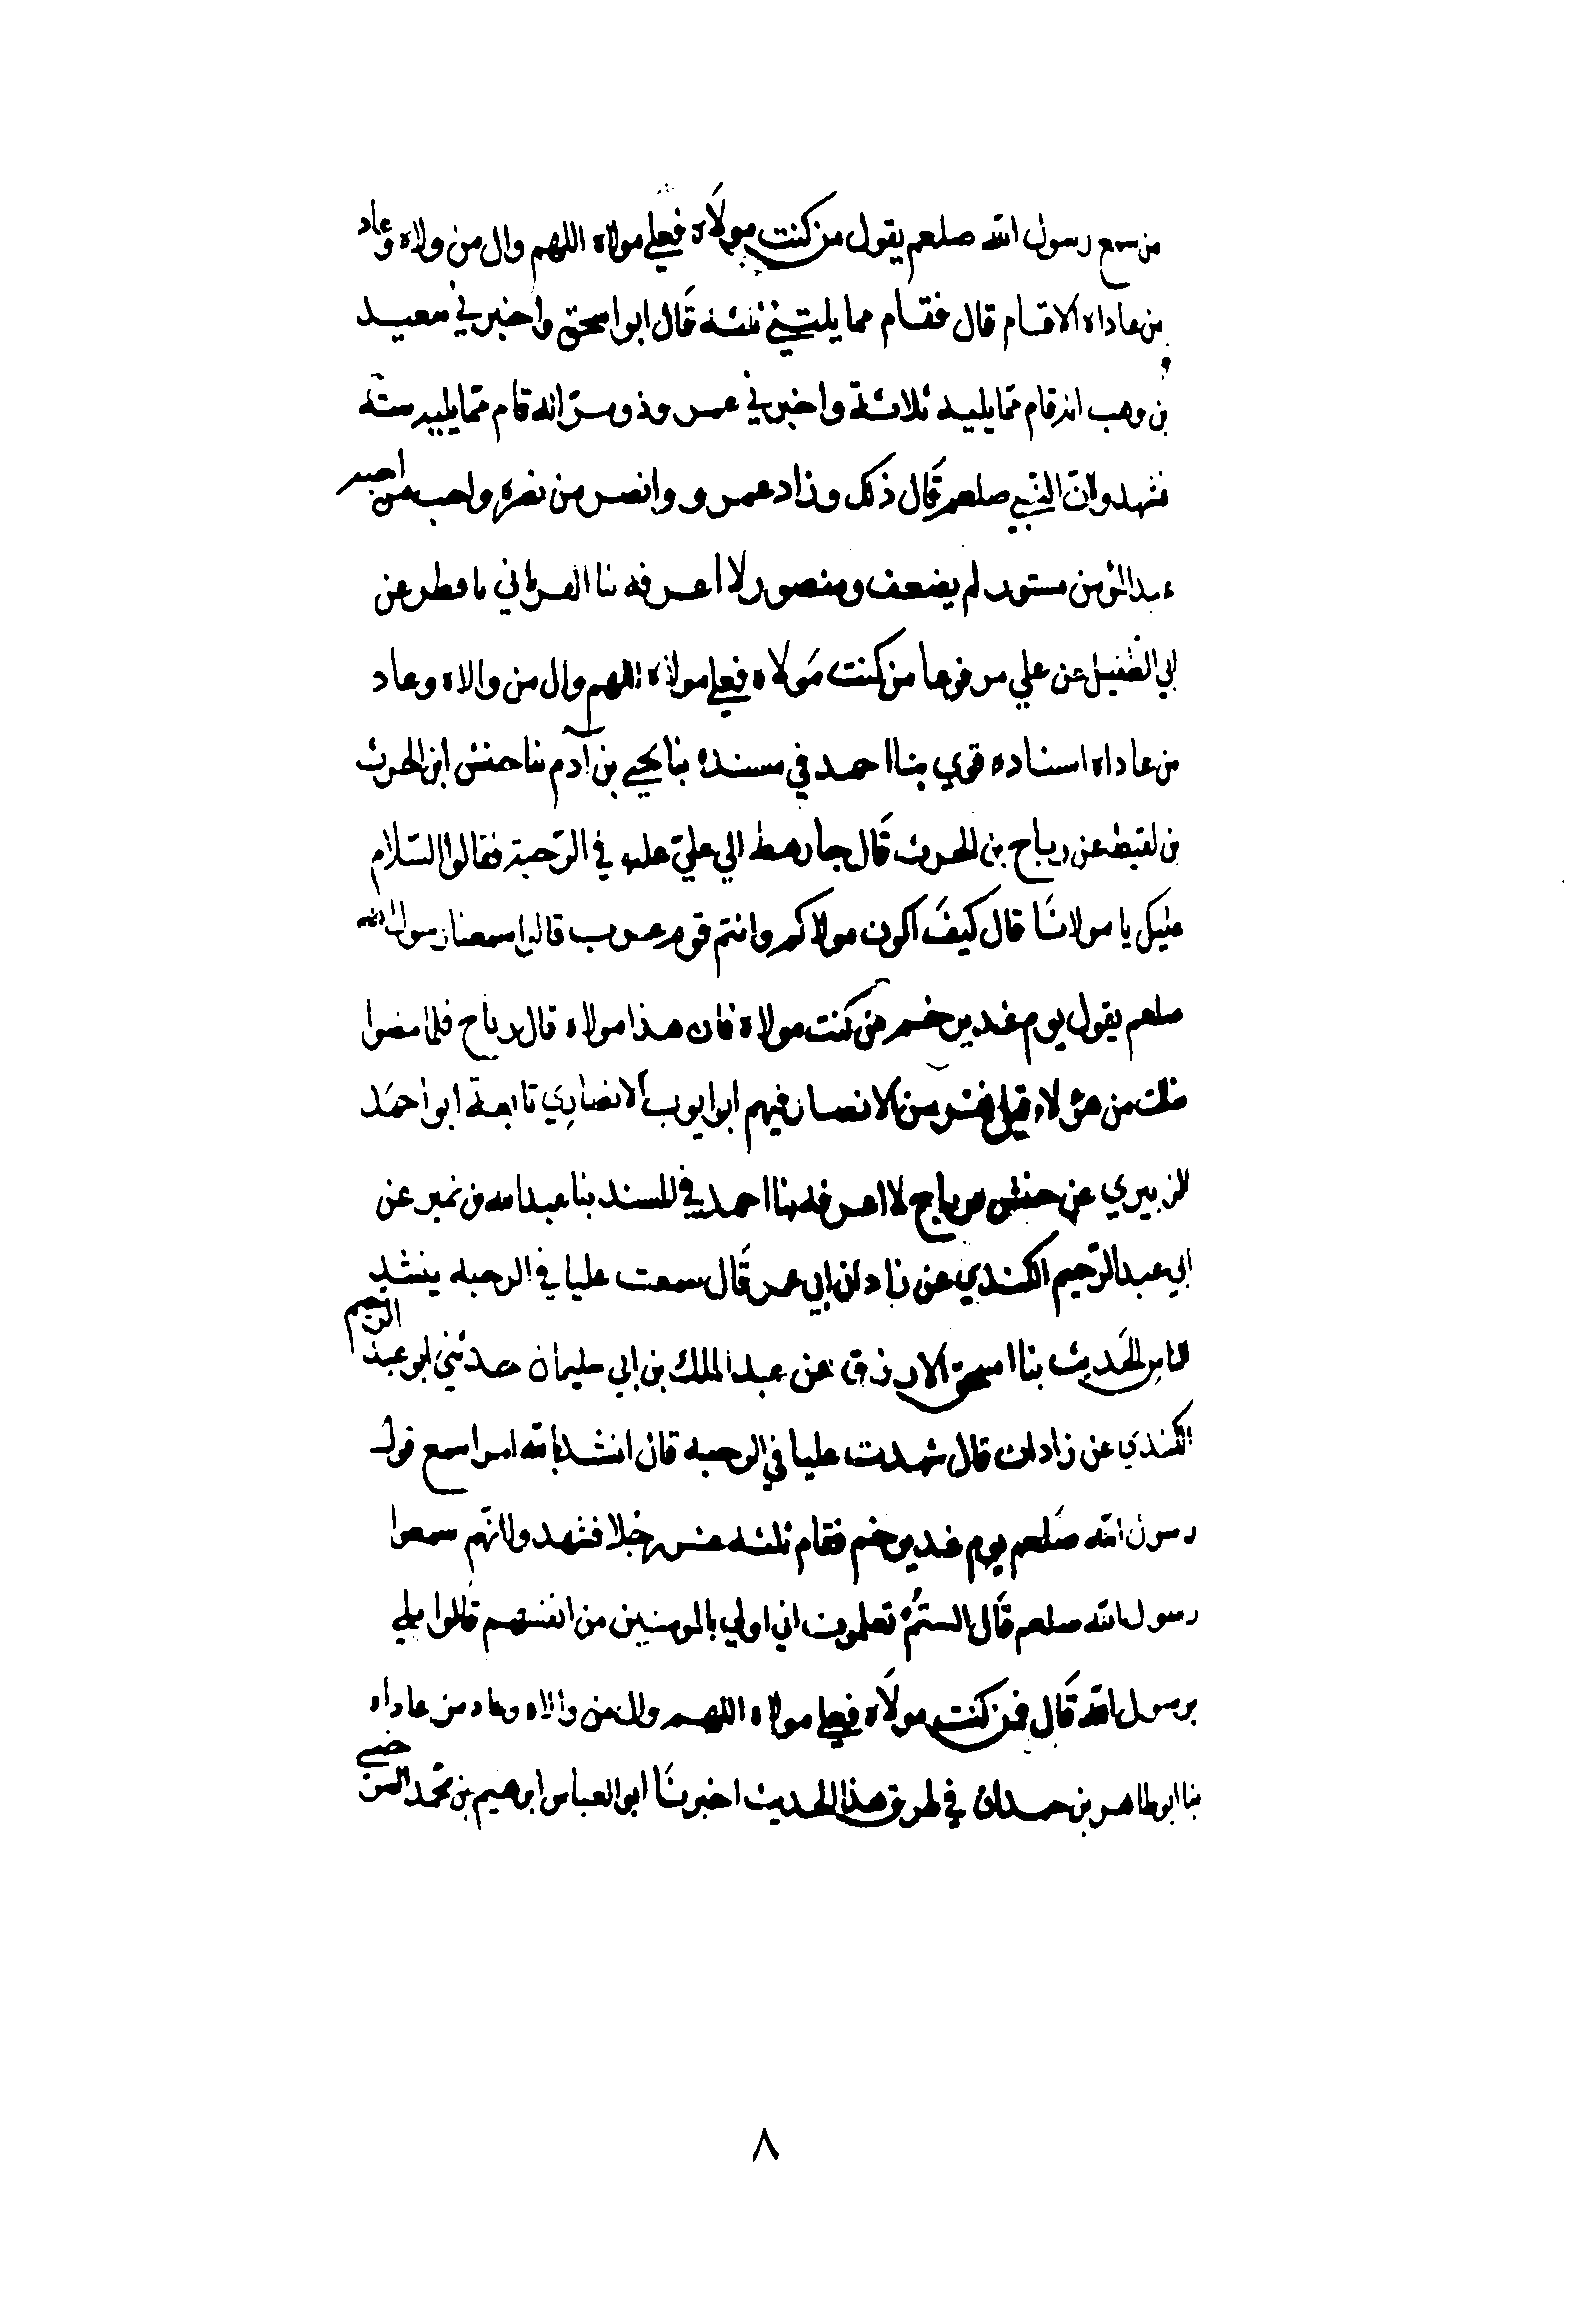 من سمع رسول الله صلعم يقول من كنت مولاه فعلي مولاه اللهم وال من ولاه وعاد
من عاداه الا قام قال فقام مما يليني ثلثه قال ابو اسحق واخبرني سعيد
بن وهب انه قام مما يليه ثلاثة واخبرني عمرو ذو مر انه قام مما يليه ستة
فشهدوا ان النبي صلعم قال ذلك وزاد عمرو وانصر من نصره واحب من احبه
عبد المؤمن مستور لم يضعف ومنصور لا اعرفه ثنا الفريابي نا فطر عن
ابي الطفيل عن علي مرفوعا من كنت مولاه فعلي مولاه اللهم وال من والاه وعاد
من عاداه اسناده قوي بنا احمد في مسنده بنا يحيي بن آدم بنا حنش ابن الحرث
بن لقيط عن رياح بن الحرث قال جا رهط الي علي عليه في الرحبة فقالوا السلام
عليك يا مولانا قال كيف اكون مولاكم وانتم قوم عرب قالوا سمعنا رسول الله
صلعم يقول يوم غدير خم من كنت مولاه فان هذا مولاه قال رياح فلما مضوا
قلت من هؤلاء قيل نفر من الانصار فيهم ابو ايوب الانصاري تابعه ابو احمد
الزبيري عن حنش ورياح لا اعرفه بنا احمد في المسند بنا عبد الله بن نمير عن
ابي عبد الرحيم الكندي عن زادان ابي عمر قال سمعت عليا في الرحبه ينشد
الناس الحديث بنا اسحق الازرق عن عبد الملك بن ابي سليمان حدثني ابو عبد الرحيم
الكندي عن زادان قال شهدت عليا في الرحبه قال انشد بالله امرا سمع قول
رسول الله صلعم يوم غدير خم فقام ثلثه عشر رجلا فشهدوا انهم سمعوا
رسول الله صلعم قال الستم تعلمون اني اولي بالمومنين من انفسهم قالوا بلي
يرسول الله قال فمن كنت مولاه فعلي مولاه اللهم وال من والاه وعاد من عاداه
بنا ابو طاهر بن حمدان في طرق هذا الحديث اخبرنا ابو العباس ابرهيم بن محمد
٨